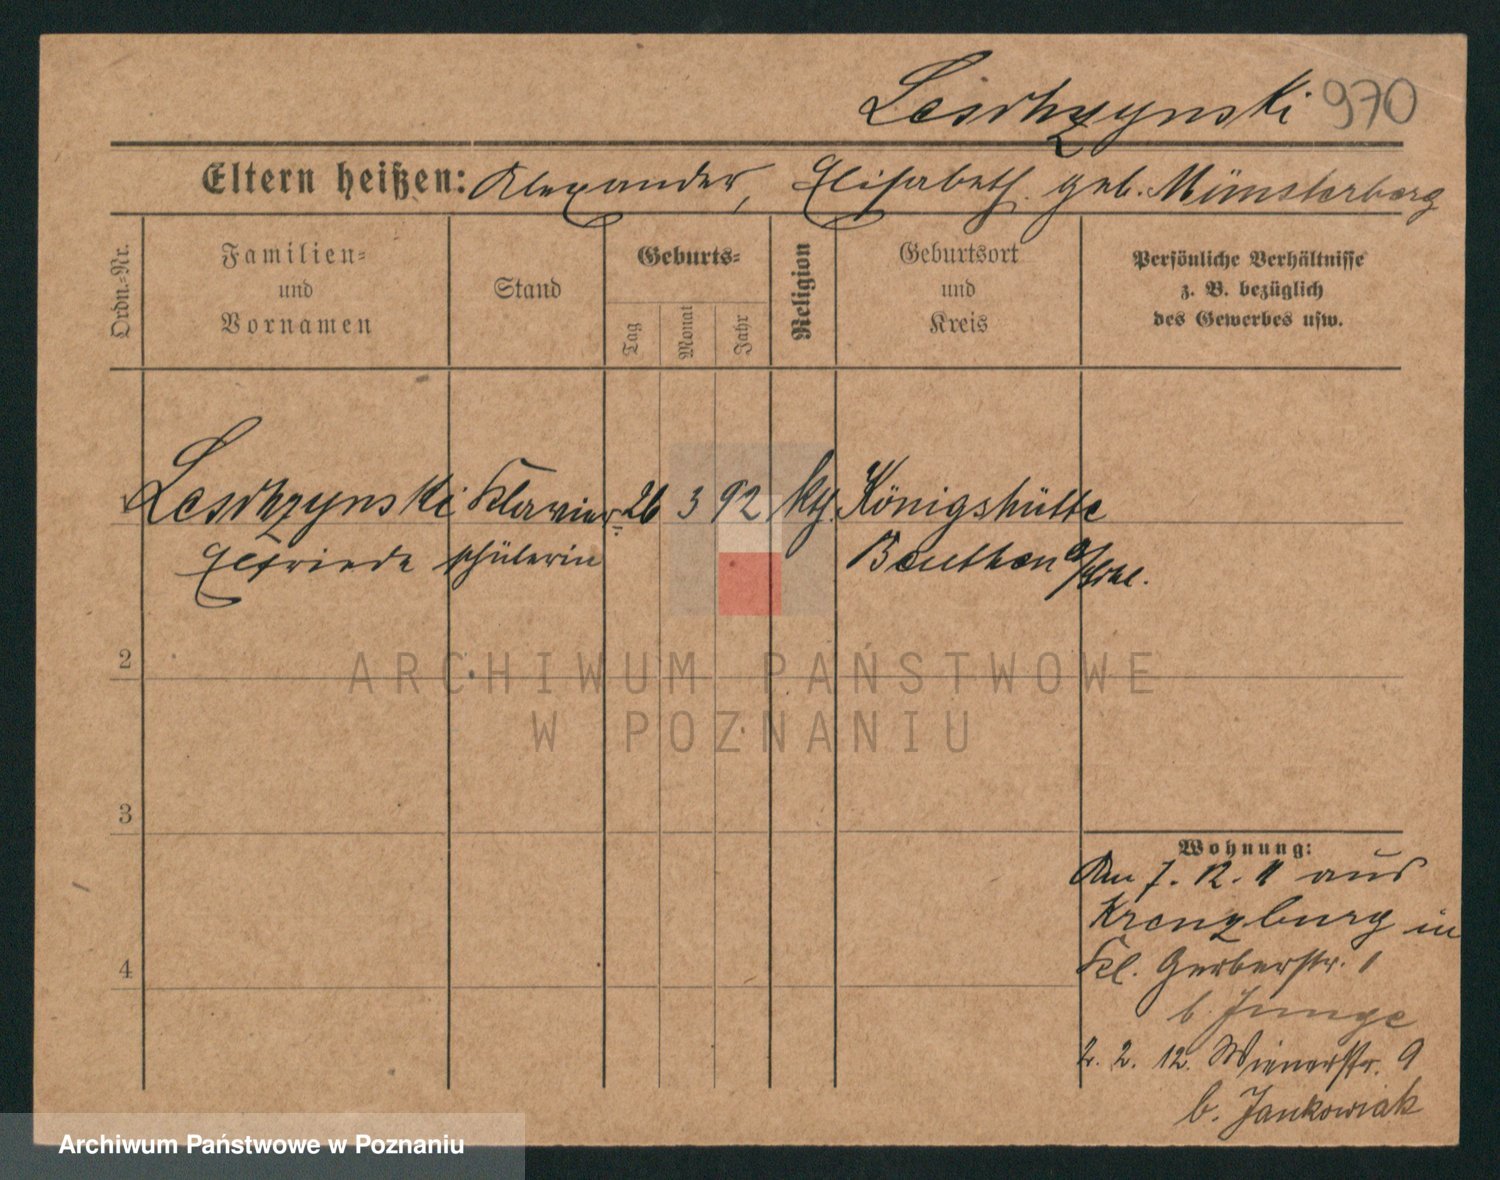 Leschzynski 970
Eltern heißen: Alexander, Elisabeth geb. Münsterberg
Ordn.-Nr.
Familien-
und
Vornamen
Stand
Geburts-
Tag
Monat
Jahr
Religion
Geburtsort
und
Kreis
Persönliche Verhältnisse
z. B. bezüglich
des Gewerbes usw.
Leschzynski Klavier- 26 3 92 kth. Königshütte
Elfriede schülerin Beuthen o/Schl.
2
ARCHIWUM PAŃSTWOWE
W POZNANIU
3
4
Wohnung:
Am 7. 12. 11 aus
Kreuzburg in
Kl. Gerberstr. 1
b. Junge
2. 2. 12. Wienerstr. 9
b. Jankowiak
Archiwum Państwowe w Poznaniu